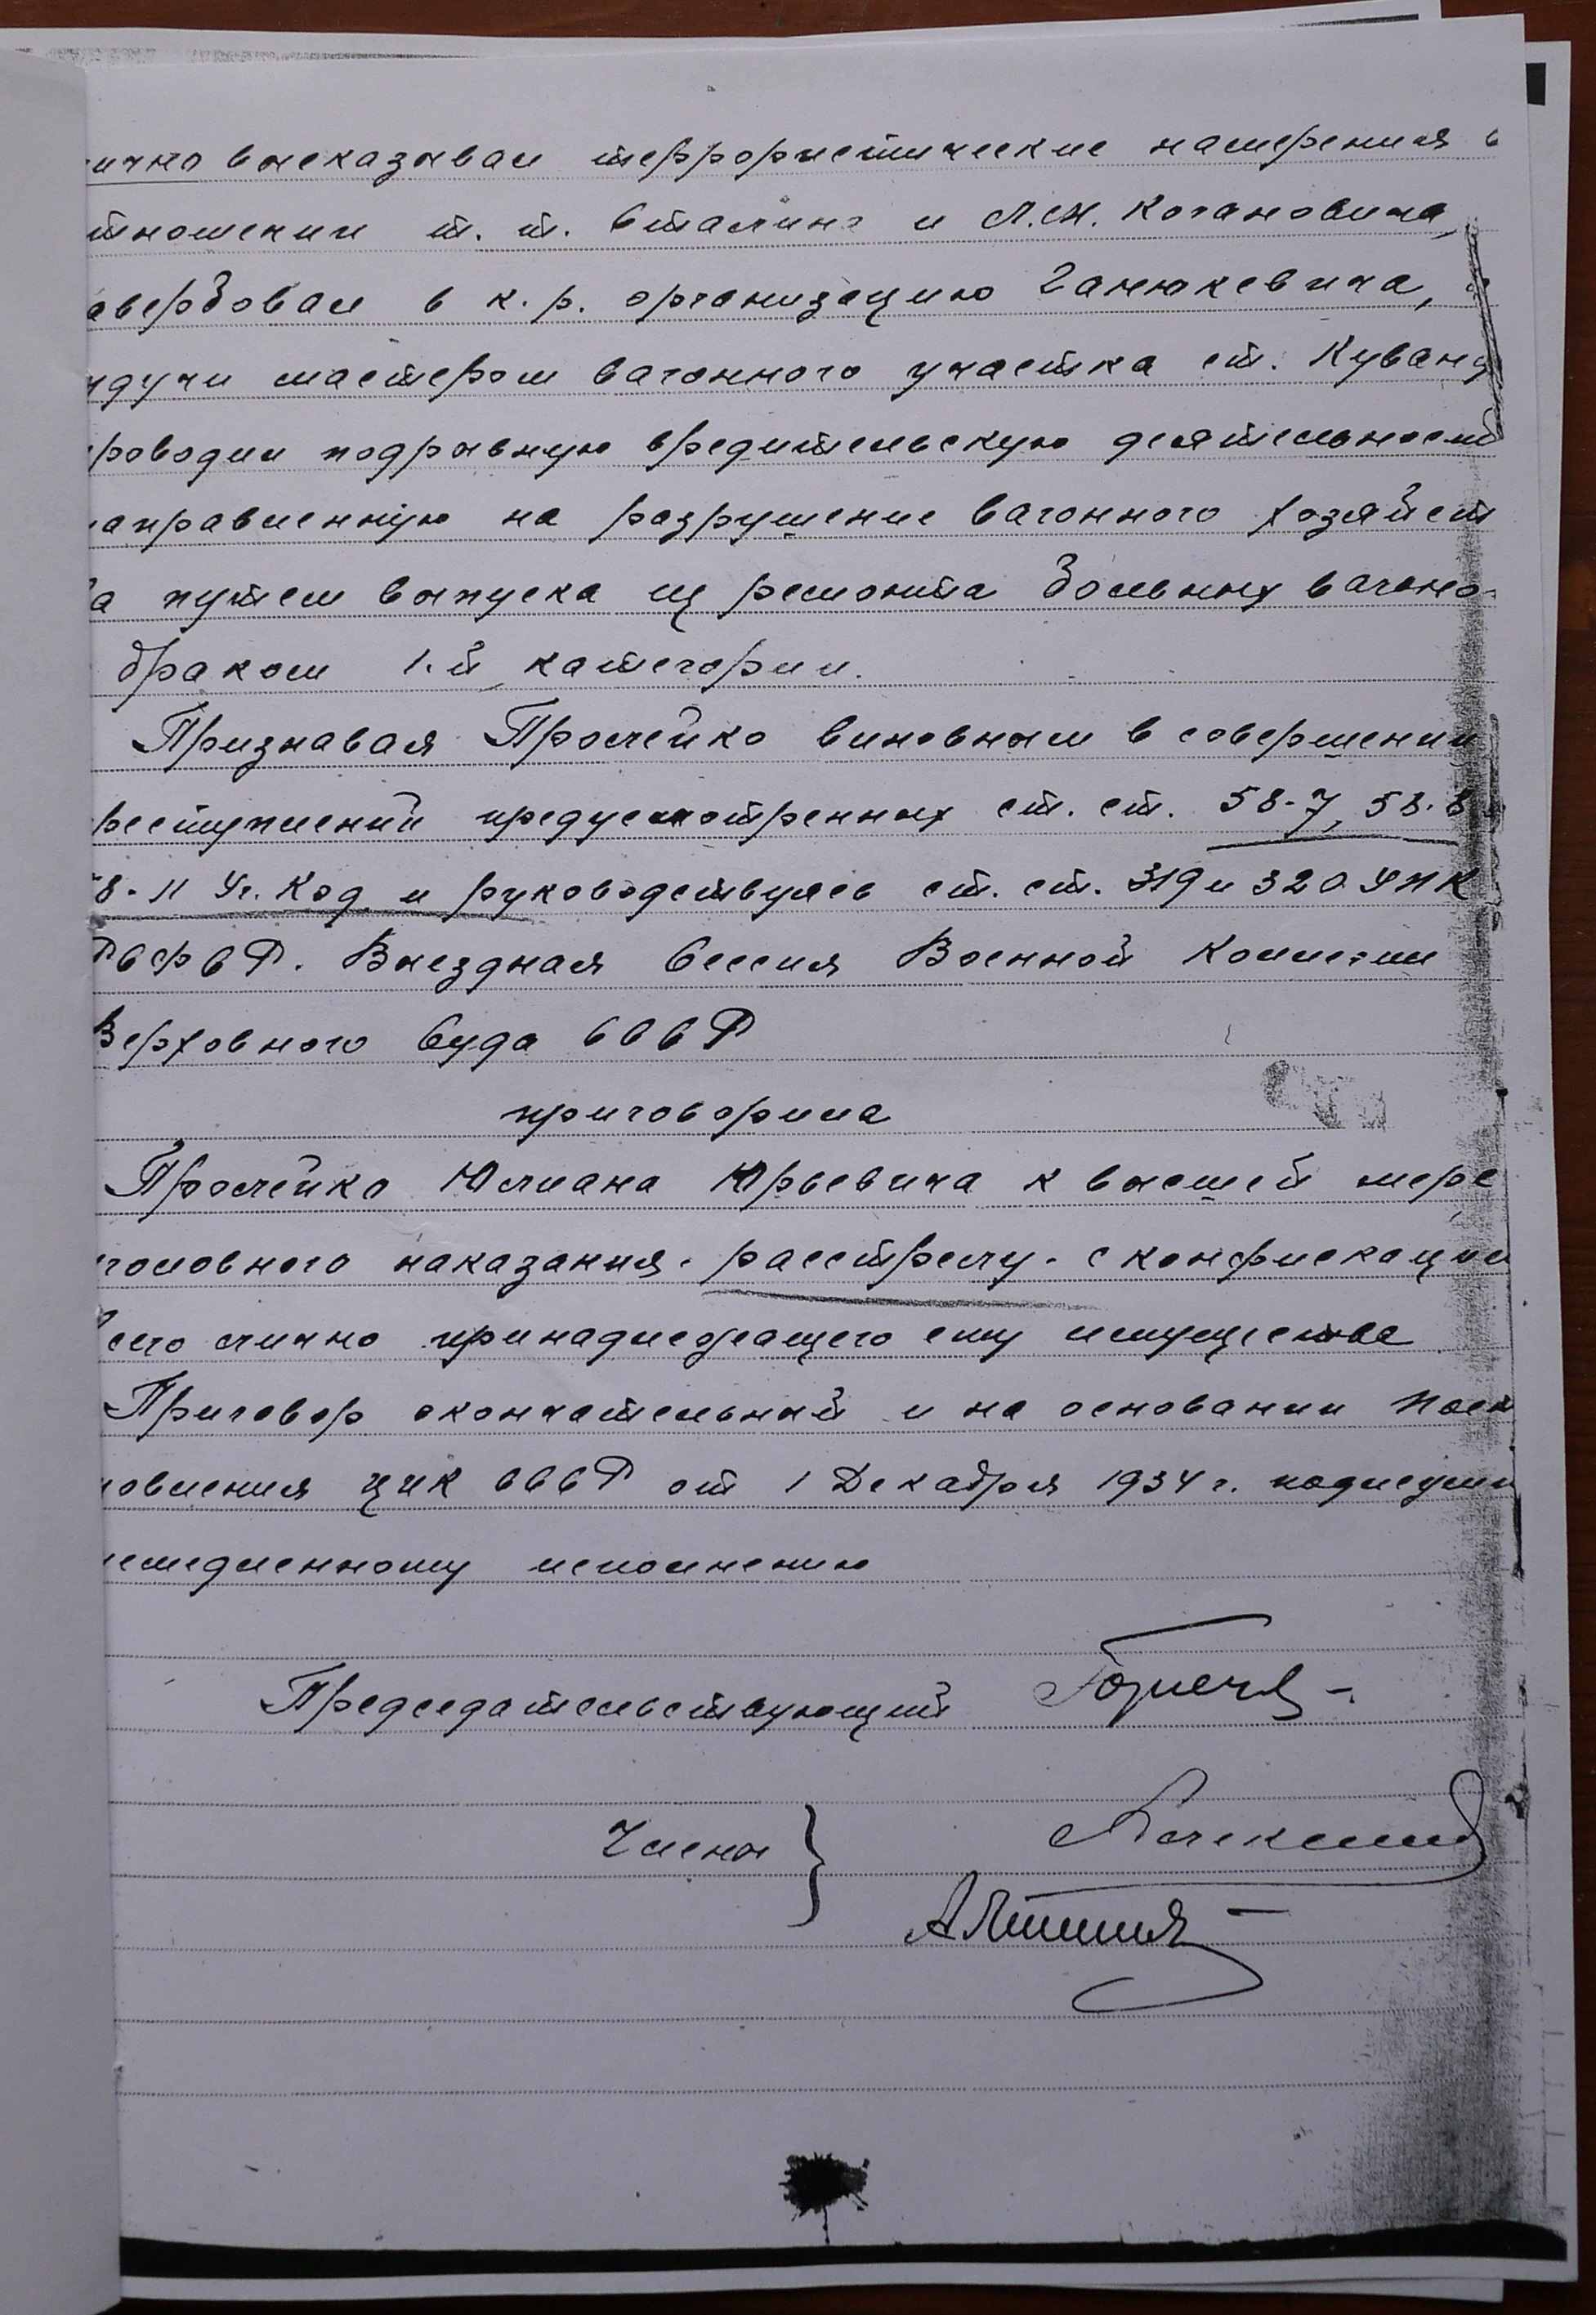 ично высказывал террористические намерения в
тношении т. т. Сталина и Л.М. Кагановича,
авербовал в к.р. организацию Ганюкевича,
удучи мастером вагонного участка ст. Куванд
роводил подрывную вредительскую деятельность
аправленную на разрушение вагонного хозяйст
ва путем выпуска из ремонта больных вагоно
браком 1-й категории.
Признавая Пролейко виновным в совершении
реступлений предусмотренных ст. ст. 58-7, 58-8
8-11 Уг. Код и руководствуясь ст. ст. 319 и 320 УПК
РСФСР. Выездная Сессия Военной Коллегии
Верховного Суда СССР
приговорила
Пролейко Юлиана Юрьевича к высшей мере
головного наказания - расстрелу - с конфискацией
всего лично принадлежащего ему имущества
Приговор окончательный и на основании Пост
новления ЦИК СССР от 1 Декабря 1934 г. подлежит
емедленному исполнению
Председательствующий Горячев -
Члены } Алексеев